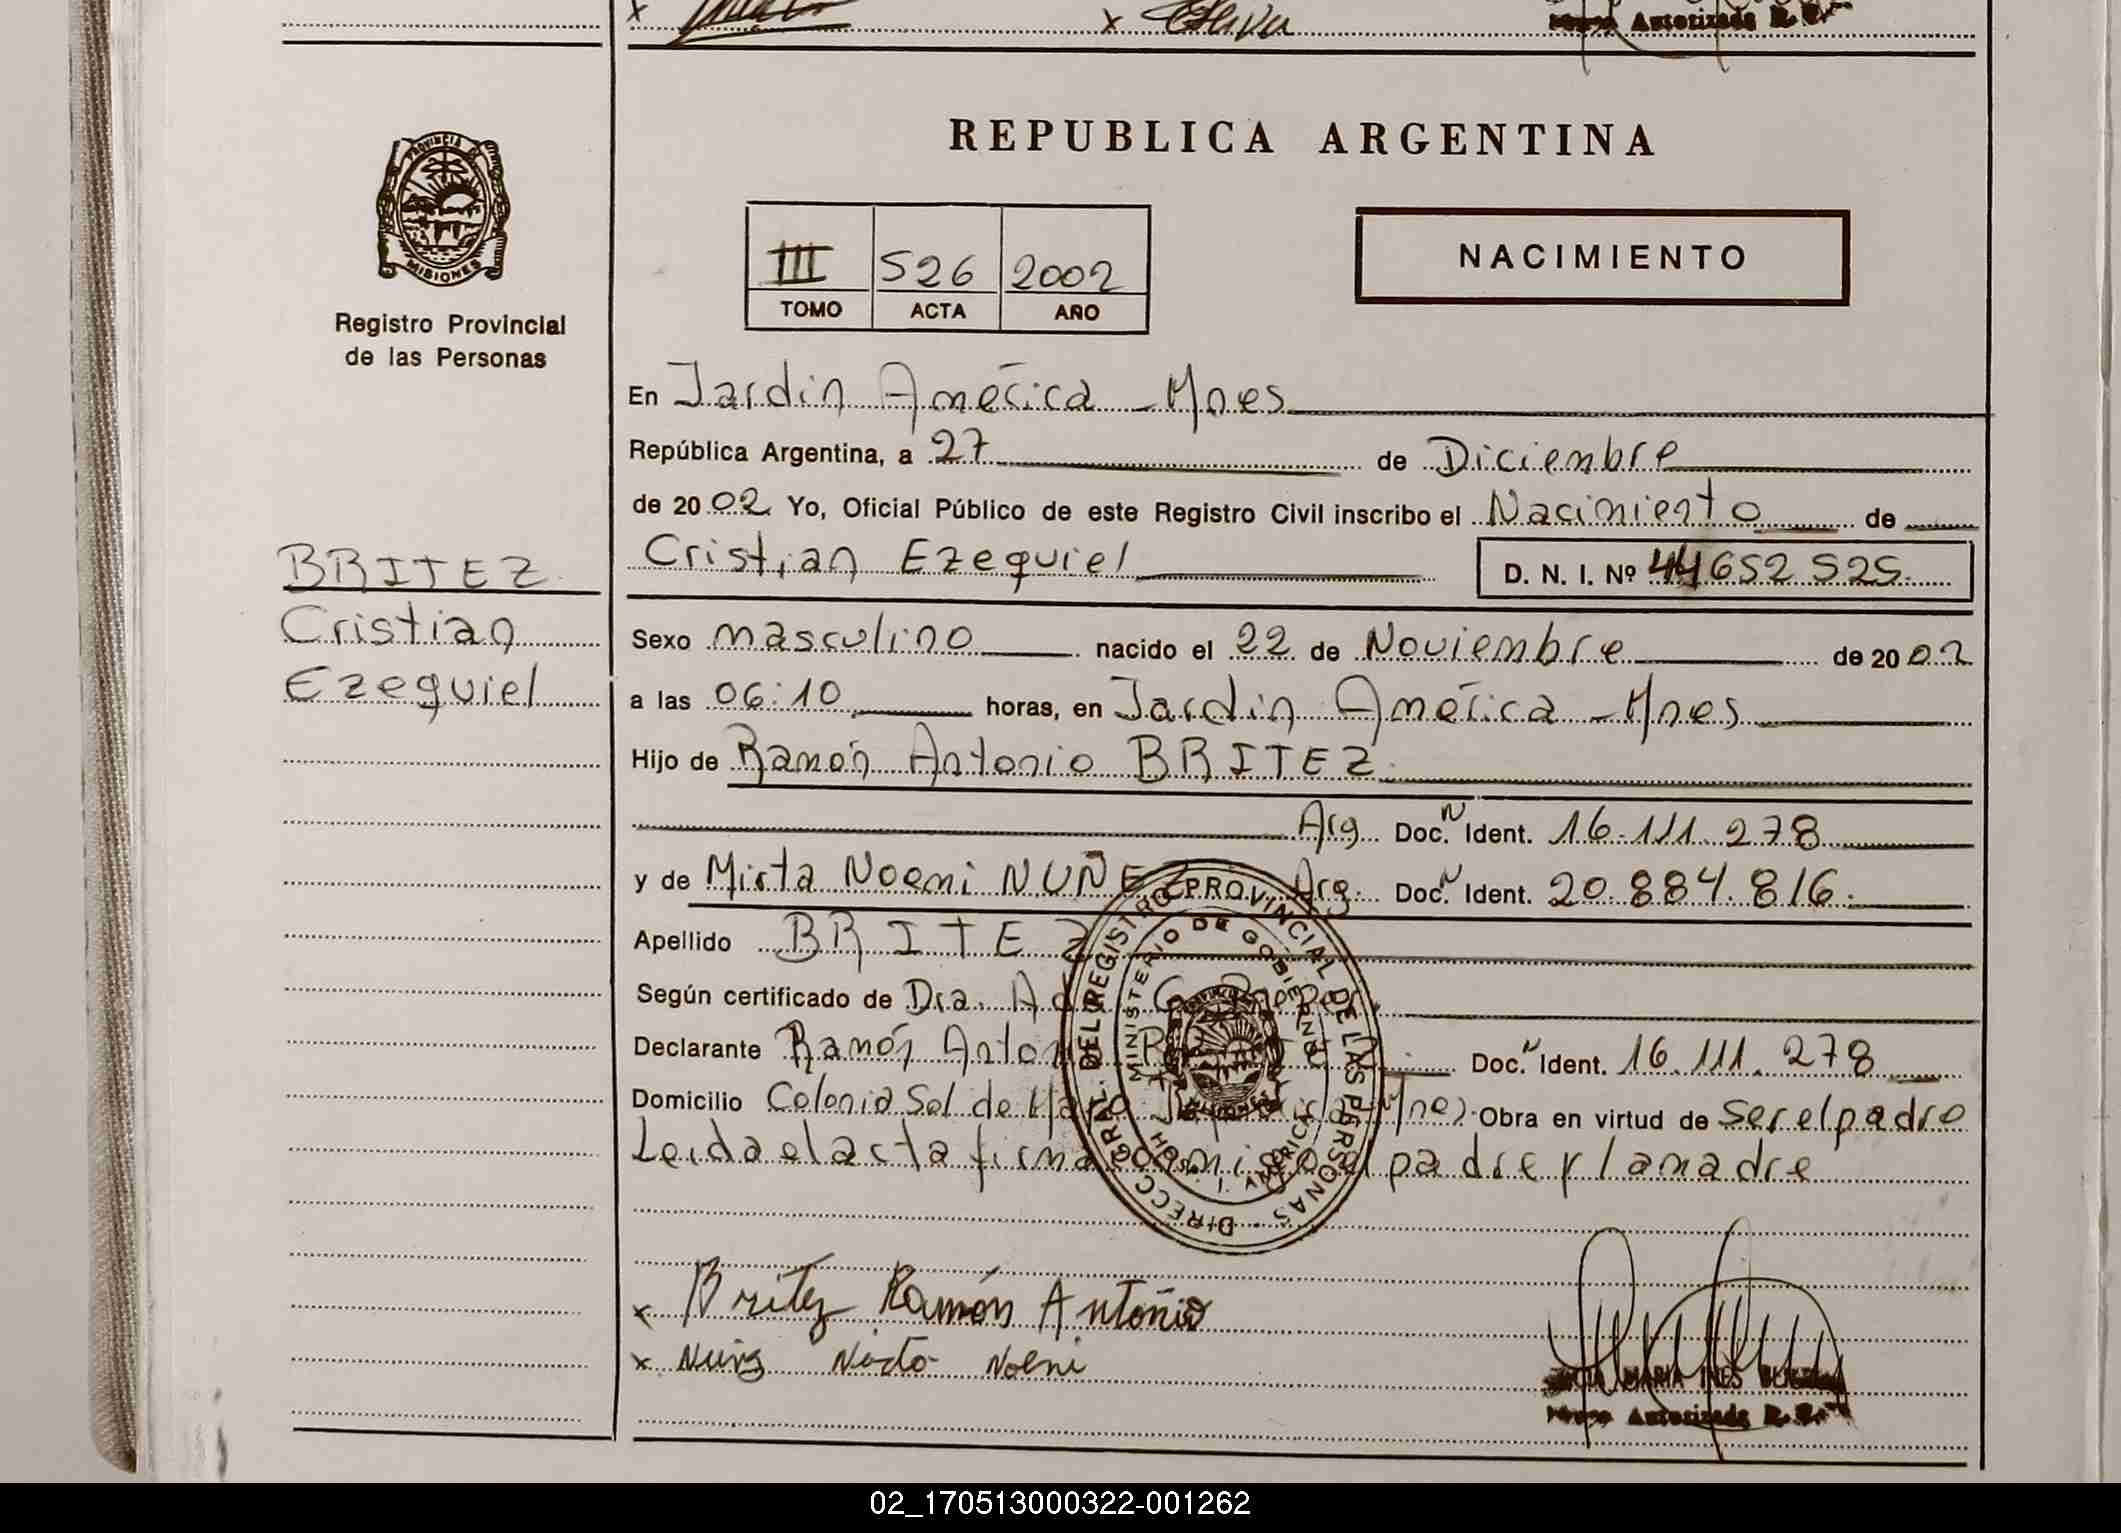 Autorizada R. C.
REPUBLICA ARGENTINA
PROVINCIA DE
MISIONES
Registro Provincial
de las Personas
III 526 2002
TOMO ACTA AÑO
NACIMIENTO
En Jardin América - Mnes
República Argentina, a 27 de Diciembre
de 2002 Yo, Oficial Público de este Registro Civil inscribo el Nacimiento de
Cristian Ezequiel D. N. I. Nº 44652525
BRITEZ
Cristian
Ezequiel
Sexo masculino nacido el 22 de Noviembre de 2002
a las 06:10 horas, en Jardin América - Mnes
Hijo de Ramón Antonio BRITEZ
Arg. Doc. N Ident. 16.111.278
y de Mirta Noemi NUÑEZ Arg. Doc. N Ident. 20.884.816.
Apellido BRITEZ
Según certificado de Dra.
Declarante Ramón Antonio Doc. N Ident. 16.111.278
Domicilio Colonia Sol de Mayo Obra en virtud de ser el padre
Leida el acta firma conmigo el padre y la madre
DIRECC. GRAL. DEL REGISTRO PROVINCIAL DE LAS PERSONAS
MINISTERIO DE GOBIERNO
J. AMERICA
x Britez Ramón Antonio
x Noemi
MARIA INES
Autorizada R. C.
02_170513000322-001262